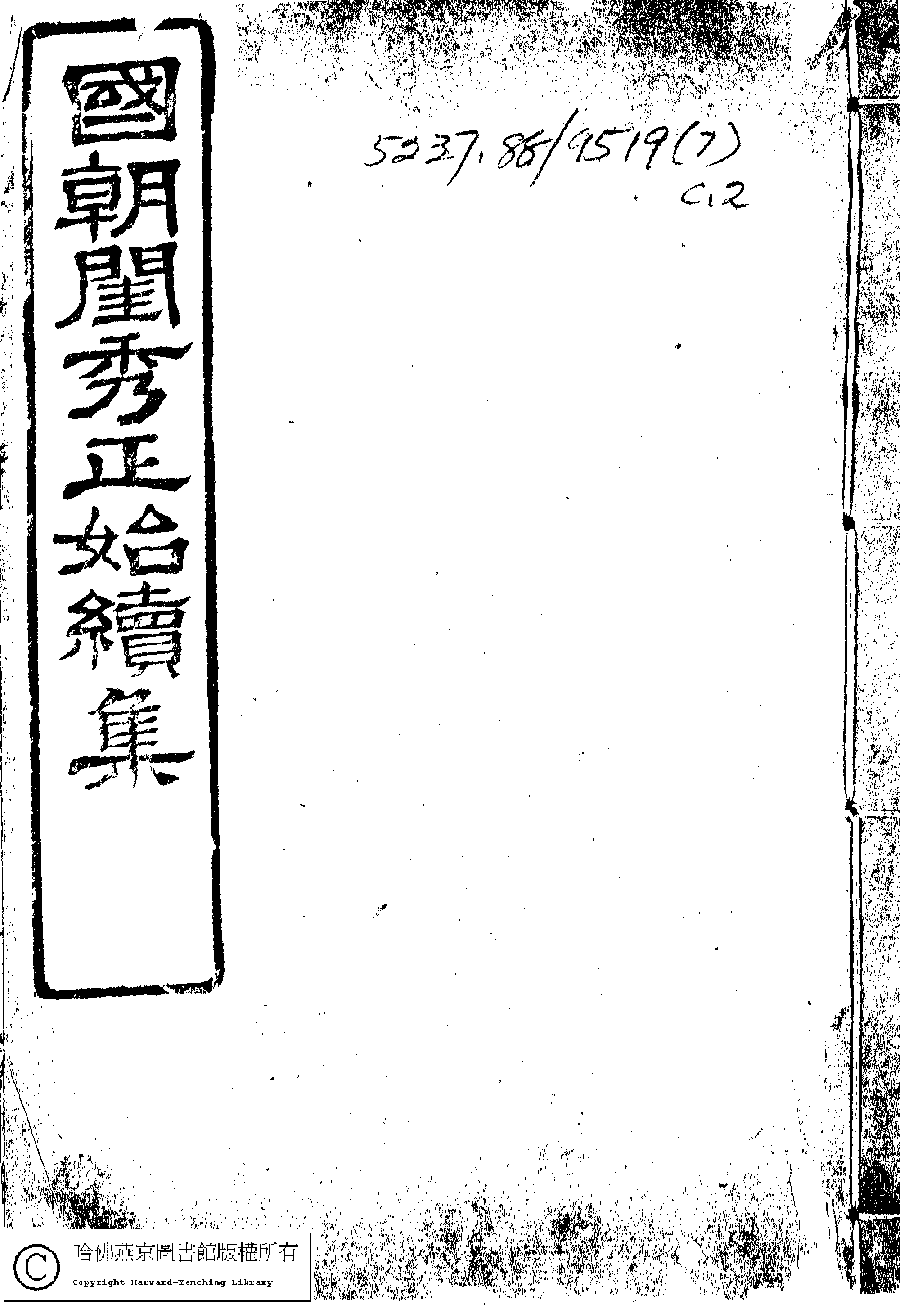 國朝閨秀正始續集
5237.88/9519(7)
C.2
© 哈佛燕京圖書館版權所有
Copyright Harvard-Yenching Library